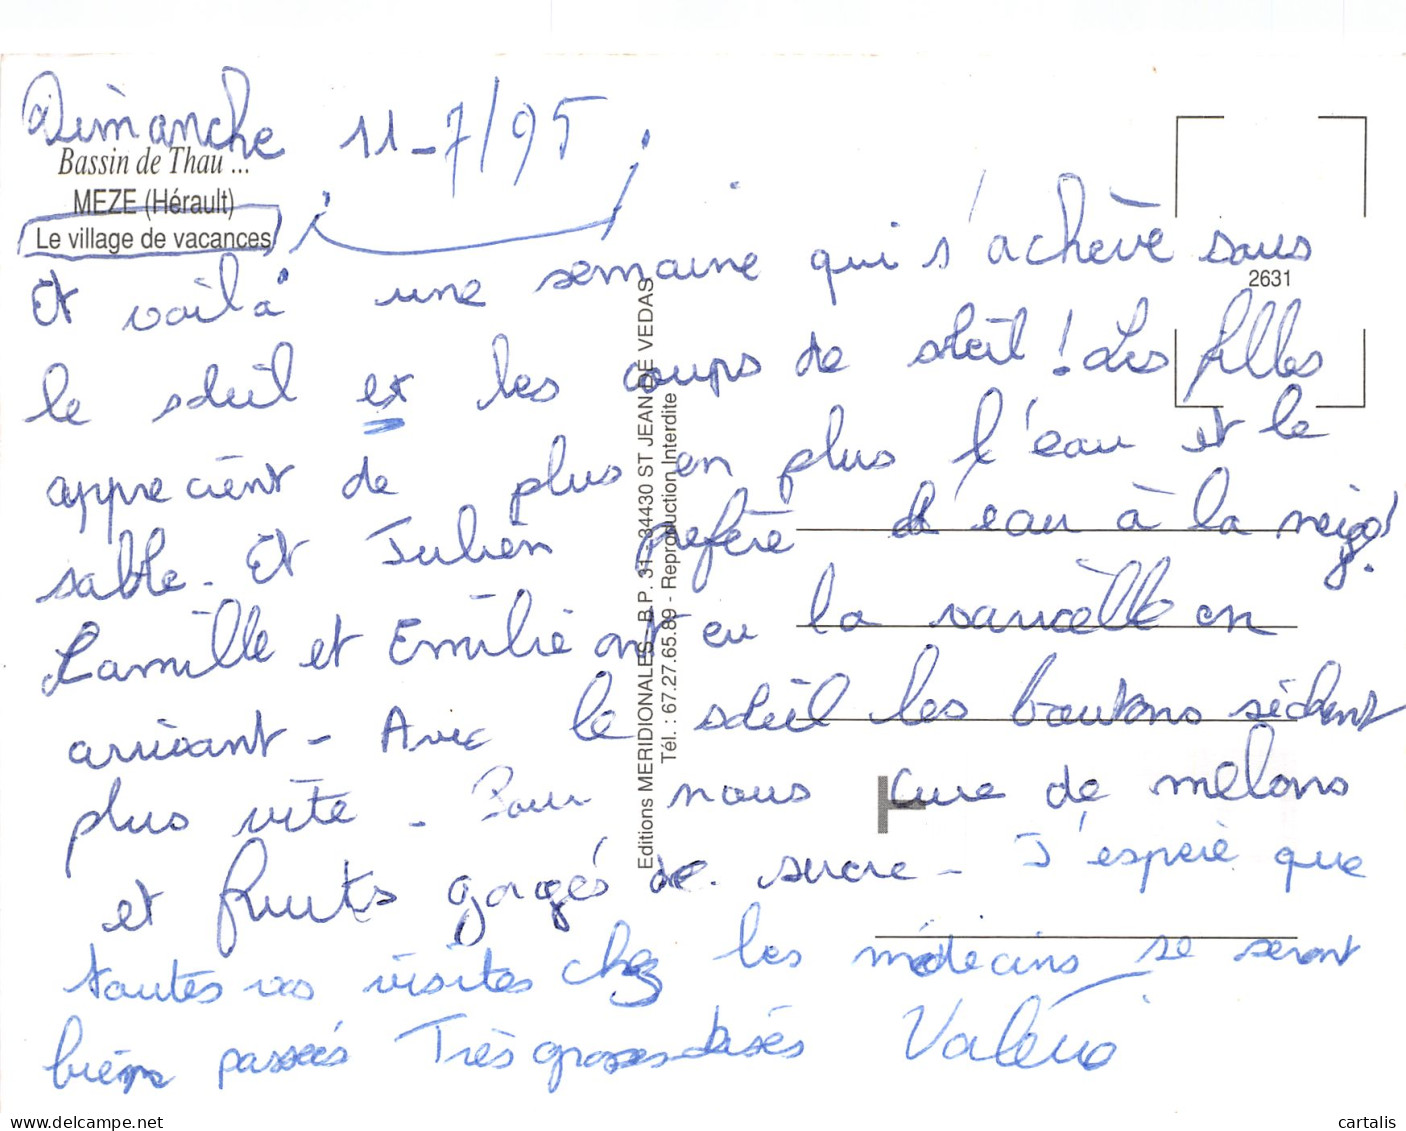 Dimanche 11-7/95
Bassin de Thau ...
MEZE (Hérault)
Le village de vacances
2631
Et voilà une semaine qui s'achève sous
le soleil et les coups de soleil ! Les filles
apprecient de plus en plus l'eau et le
sable. Et Julien prefère l'eau à la neige!
Camille et Emilie ont eu la varicelle en
arrivant - Avec le soleil les boutons sèchent
plus vite - Pour nous cure de melons
et fruits gorgés de sucre - J'espère que
toutes vos visites chez les médecins se seront
bien passés Très grosses bises Valérie
Editions MERIDIONALES - B.P. 31 - 34430 ST JEAN DE VEDAS
Tél. : 67.27.65.89 - Reproduction Interdite
delcampe.net
cartalis